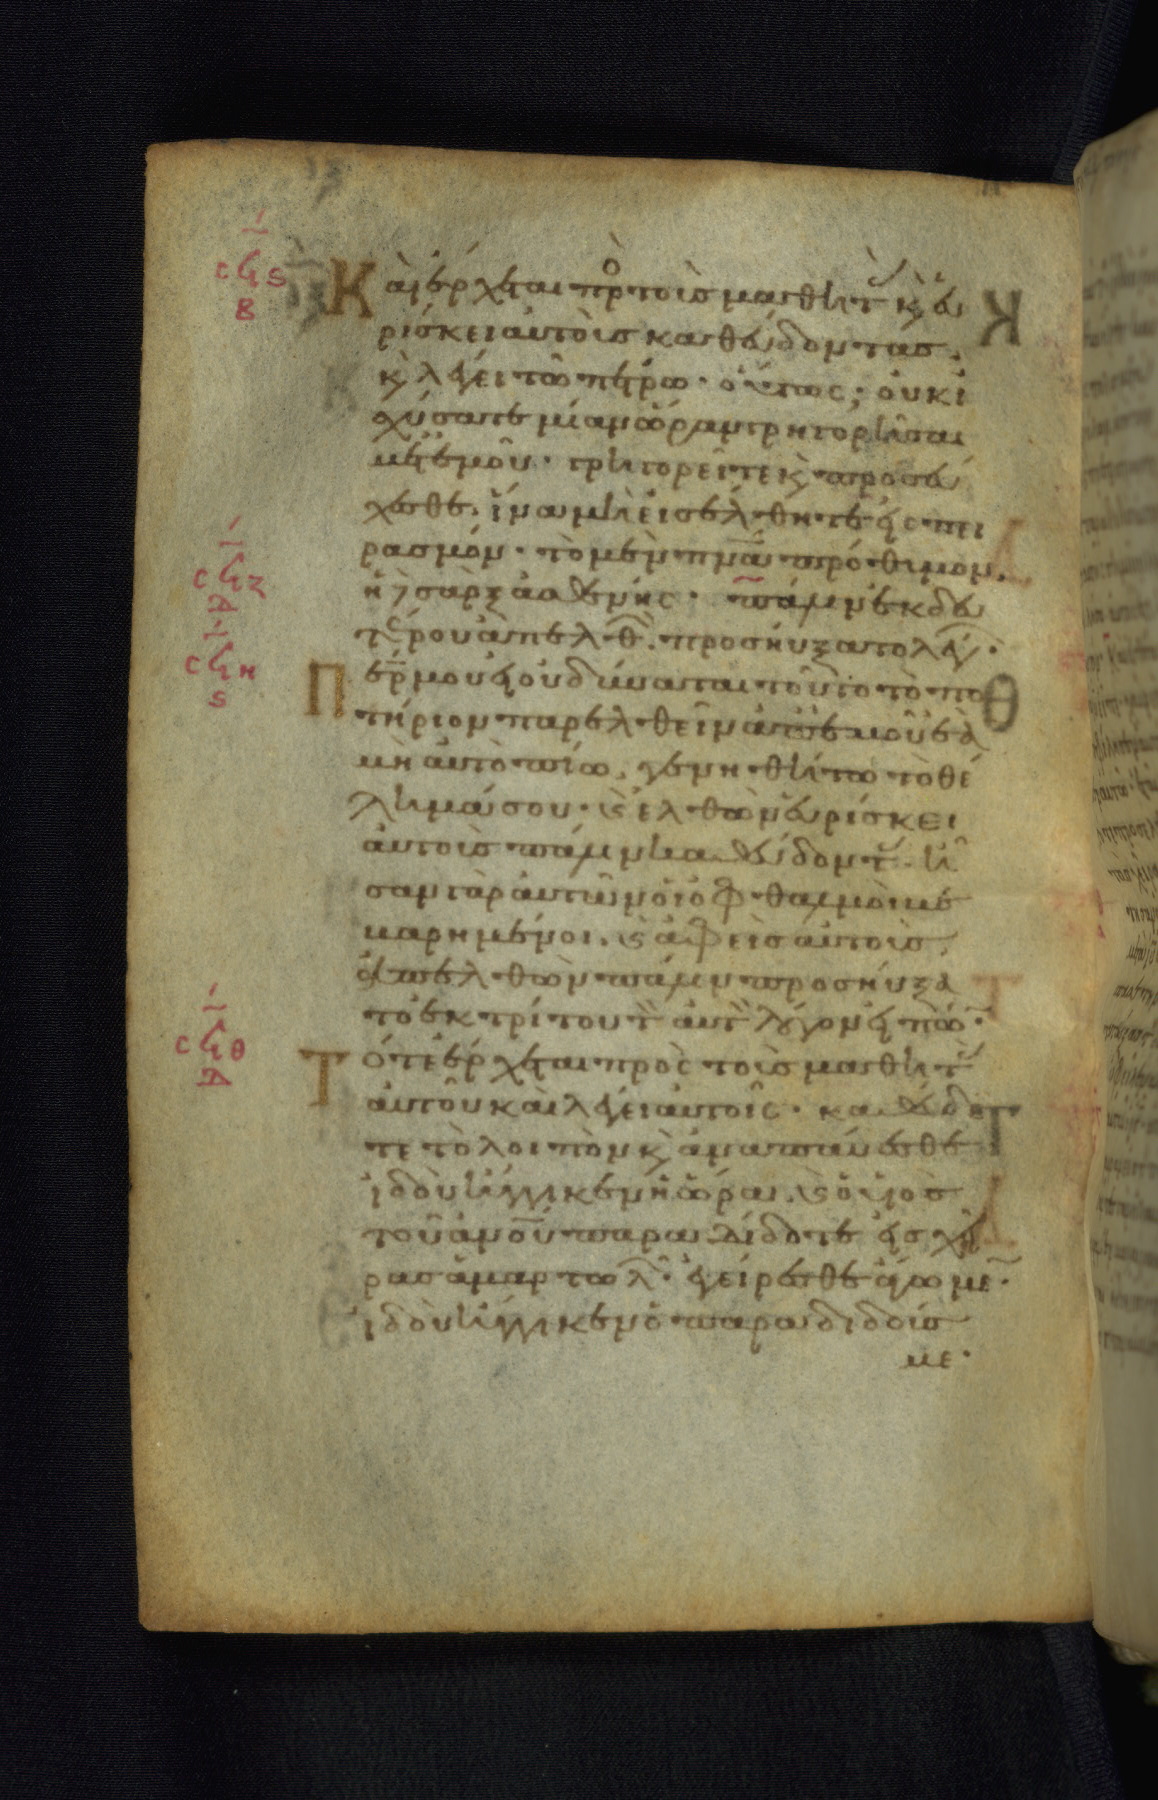 Καὶ ἔρχεται πρὸ τοὺσ μαθητ κ̀ εὑ
ρίσκει αὐτοὺσ καθεύδοντασ.
κ̀ λέγει τῶ πέτρω· οὕτως; οὐκ ἰ
σχύσατε μίαν ὥραν γρηγορῆσαι
μετ ἐμοῦ· γρηγορεῖτε κ̀ προσεύ
χεσθε. ἵνα μὴ εἰσέλθητε εἰς πει
ρασμόν· τὸ μὲν πνᾱ πρόθυμον.
ἡ σὰρξ ἀσθενής· πάλιν ἐκ δευ
τέρου ἀπελθ. προσηύξατο λέγ·
Περ μου εἰ οὐ δύναται τοῦτο τὸ πο
τήριον παρελθεῖν ἀπ ἐμοῦ ἐὰ
μὴ αὐτὸ πίω. γενηθήτω τὸ θέ
λημά σου· κ̀ ἐλθὼν εὑρίσκει
αὐτοὺσ πάλιν καθεύδοντ· ἦ
σαν γὰρ αὐτῶν οἱ ὀφθαλμοὶ βε
βαρημένοι. κ̀ ἀφεὶσ αὐτοὺσ.
ἀπελθὼν πάλιν προσηύξα
το ἐκ τρίτου τ αὐτ λόγον εἰπώ·
Τότε ἔρχεται πρὸς τοὺσ μαθητ
αὐτοῦ καὶ λέγει αὐτοῖς· καθεύδε
τε τὸ λοιπὸν κ̀ ἀναπαύεσθε
ἰδοὺ ἤγγικεν ἡ ὥρα. κ̀ ὁ υἱὸσ
τοῦ ἀνου παραδίδοτε εἰσ χεῖ
ρασ ἁμαρτωλ· ἐγείρεσθε ἄγωμε·
ἰδοὺ ἤγγικεν ὁ παραδιδούσ
με·